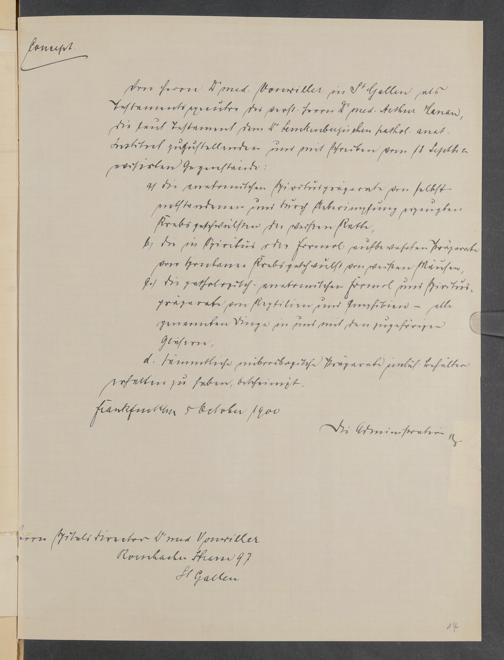 Concept
Von Herrn Dr med. Vonwiller in St Gallen als
Testamentsexecutor des verst. Herrn Dr med. Arthur Hanau,
die laut Testament dem Dr Senckenbergischen pathol. anat.
Institut zuzustellenden und mit Schreiben vom 18 Septbr
Gegenstände:
a) die anatomischen Spirituspräparate von selbst
entstandenen und durch Ueberimpfung erzeugten
Krebsgeschwülsten der weissen Ratte,
b) die in Spiritus oder Formol aufbewahrten Präparate
von Krebsgeschwülst von weissen Mäusen,
c) die pathologisch-anatomischen Formol und Spiritus-
präparate von Reptilien und Amphibien – alle
genannten Dinge in und mit den zugehörigen
Gläsern.
d. sämmtliche mikroskopische Präparate Behälter
erhalten zu haben, bescheinigt.
Frankfurt a/m 5 October 1900
Die Administration
Herrn Spitaldirector Dr med Vonwiller
Rorschacher Strasse 97
St Gallen